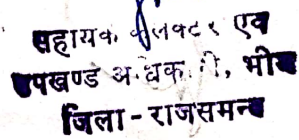 सहायक कलक्टर एवं
उपखण्ड अधिकारी, भीम
जिला - राजसमन्द